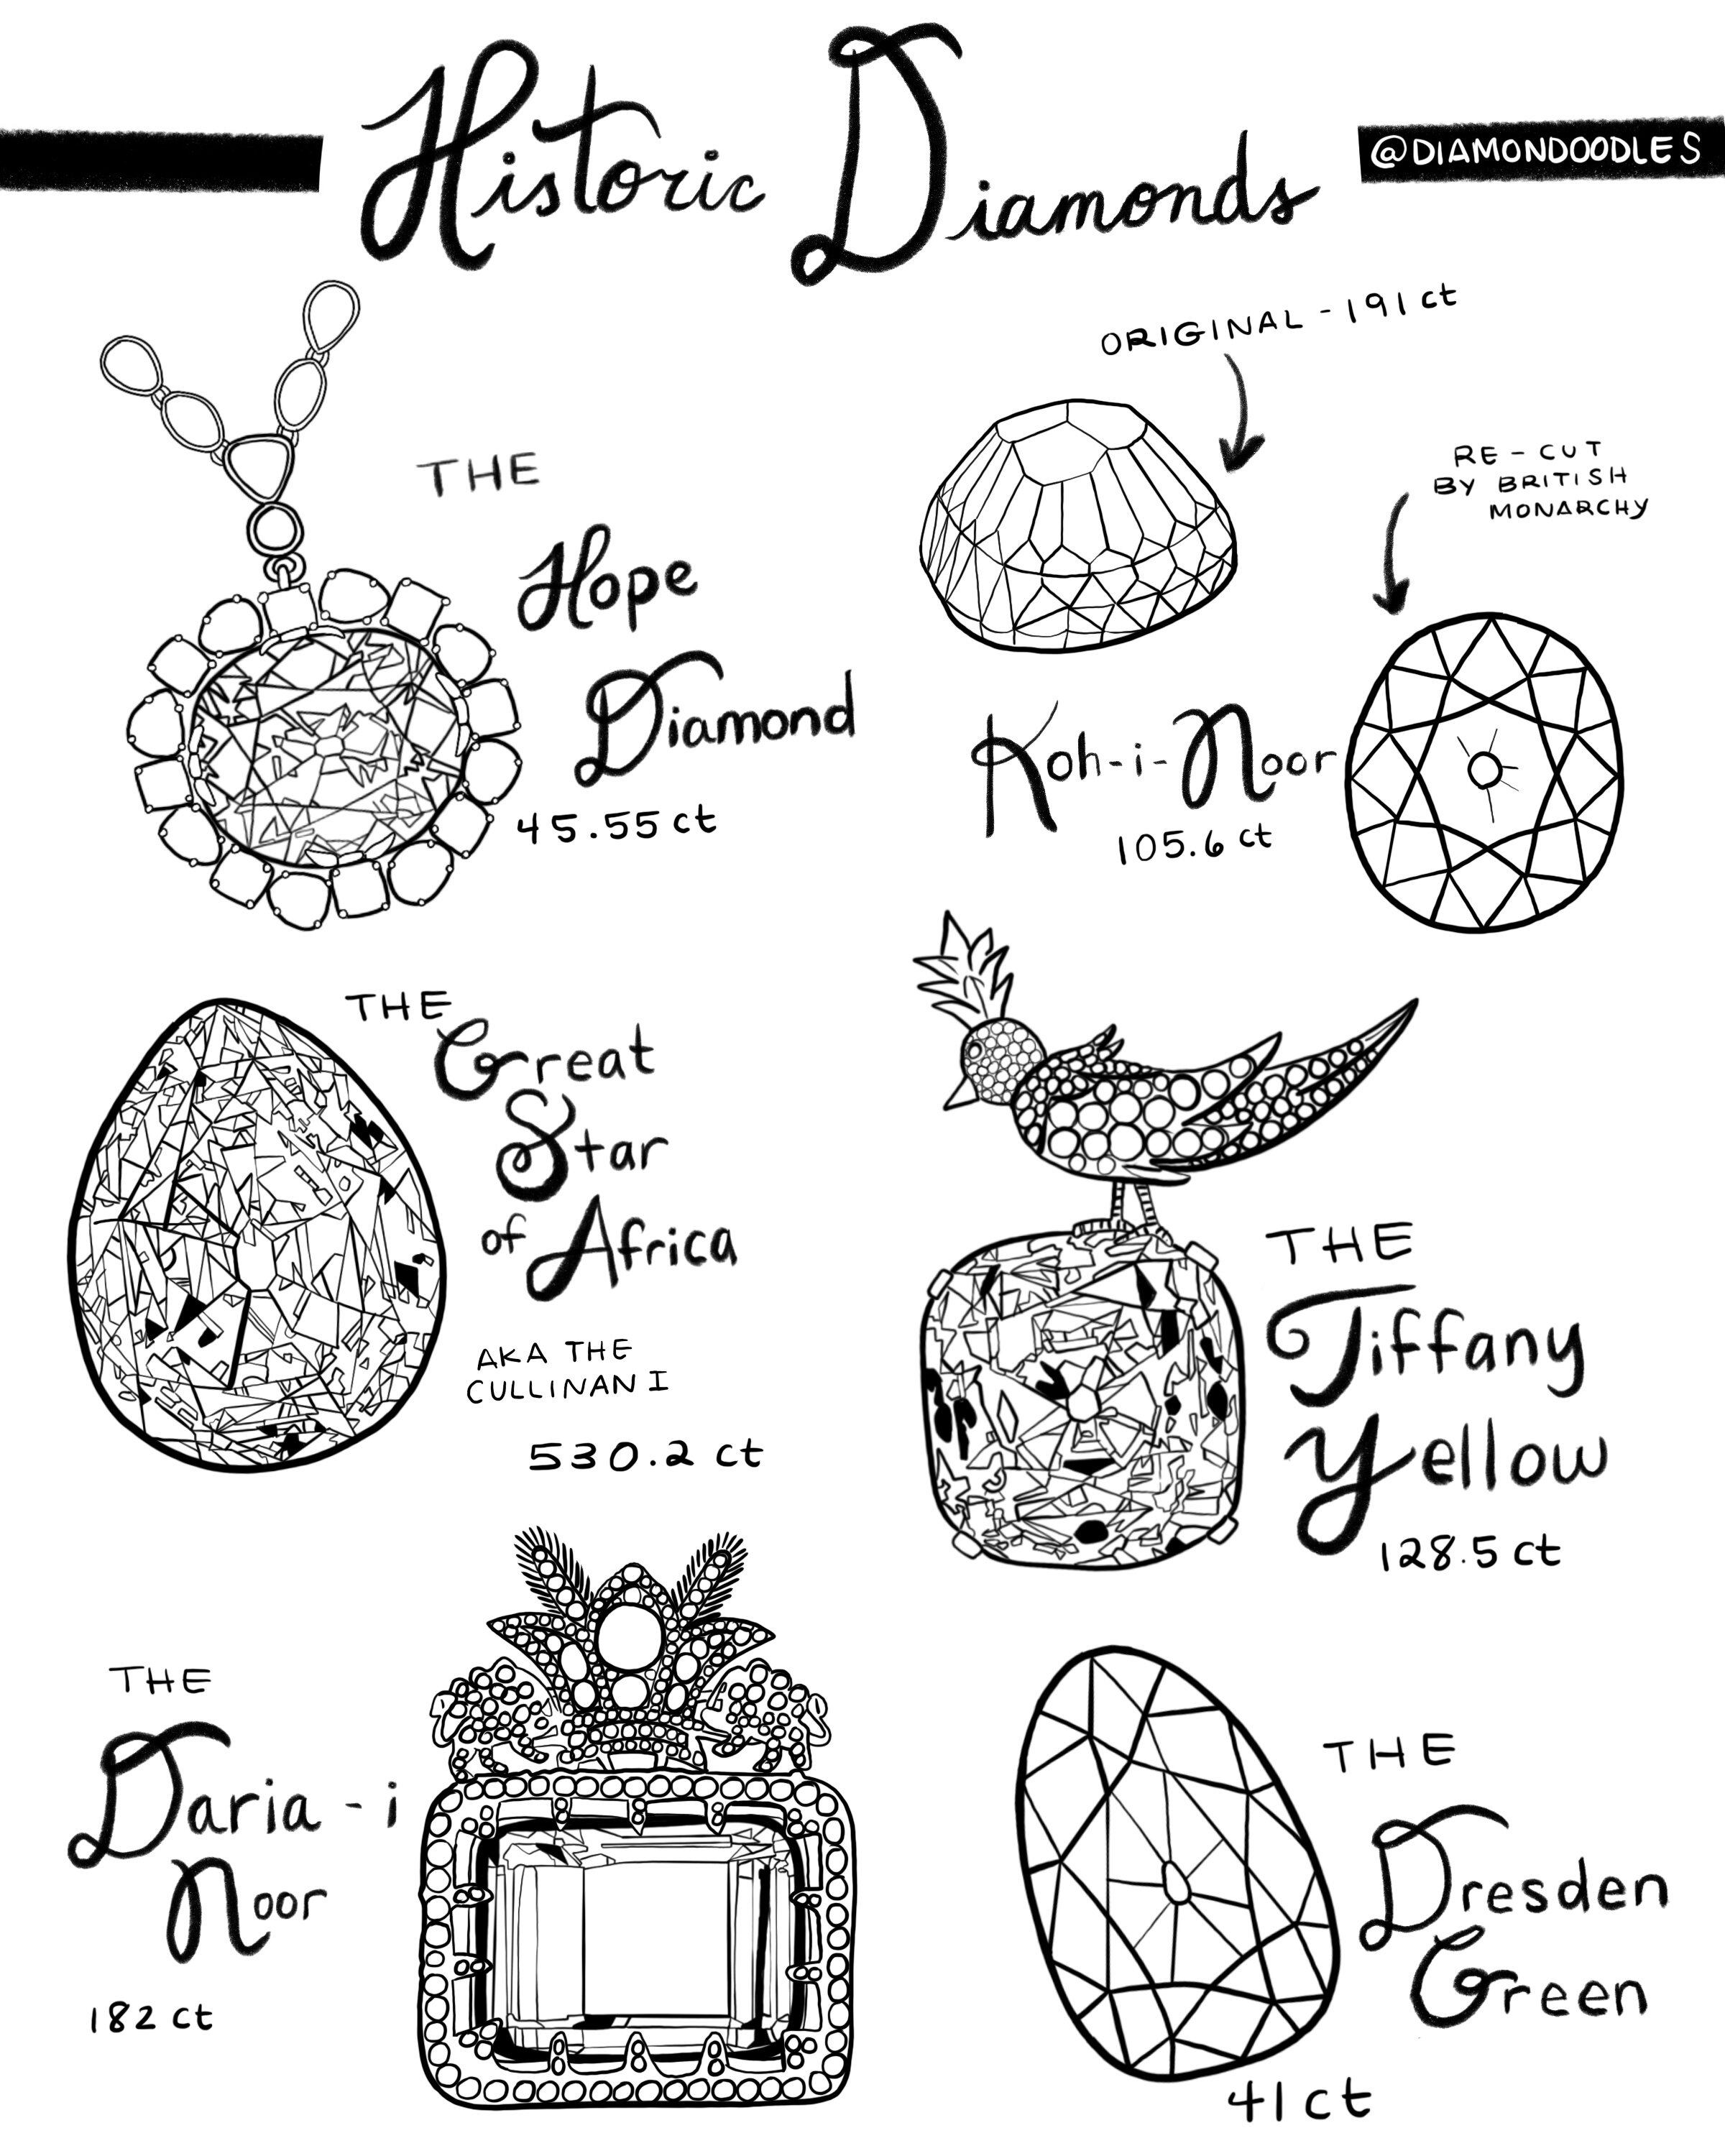 Historic Diamonds
@DIAMONDOODLES
THE
Hope
Diamond
45.55 ct
ORIGINAL - 191 ct
RE-CUT
BY BRITISH
MONARCHY
Koh-i-Noor
105.6 ct
THE
Great
Star
of Africa
AKA THE
CULLINAN I
530.2 ct
THE
Tiffany
Yellow
128.5 ct
THE
Daria-i
Noor
182 ct
THE
Dresden
Green
41 ct